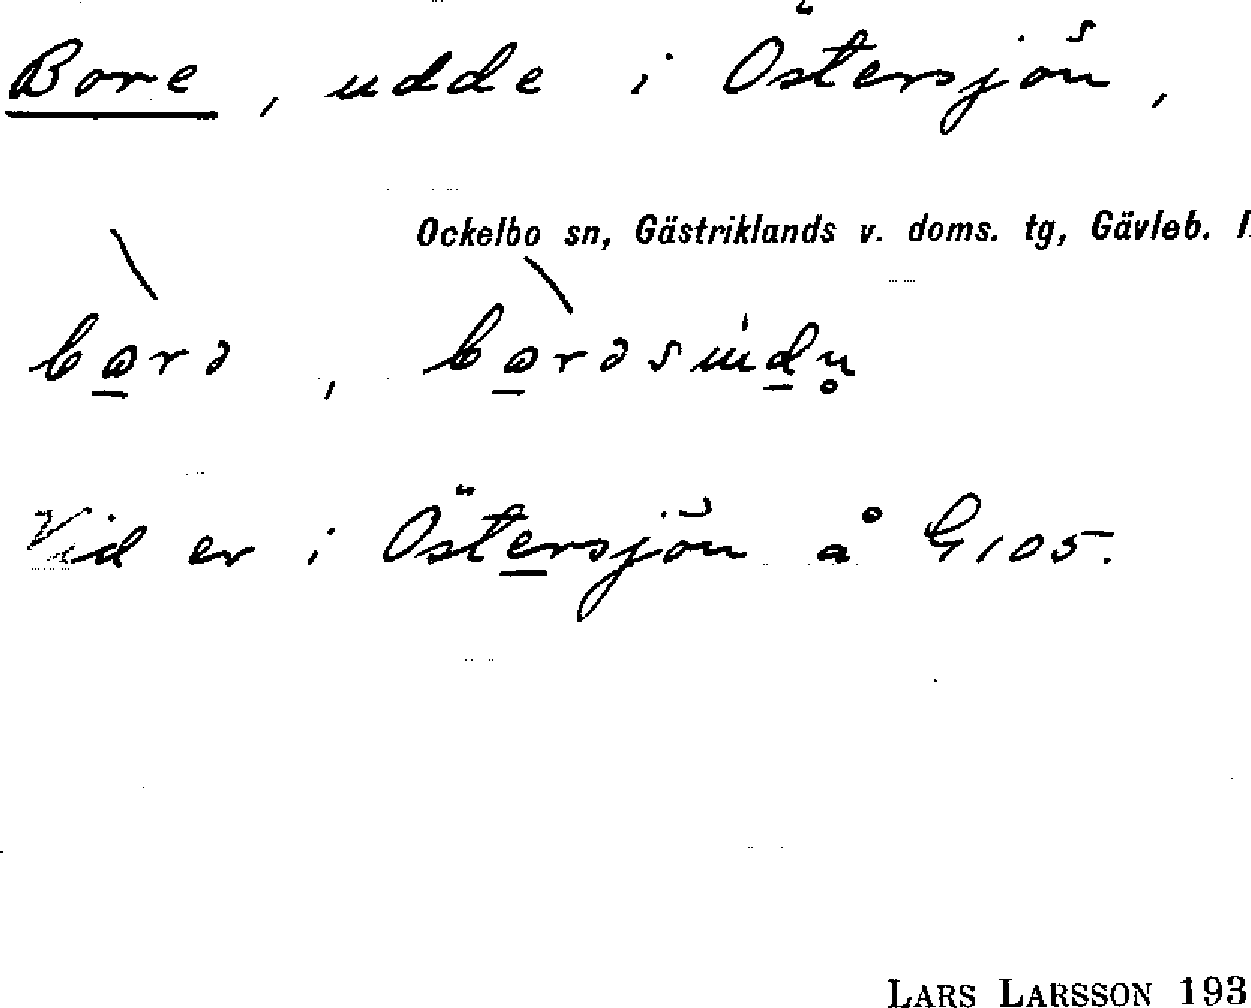 Bore, udde i Östersjön,
Ockelbo sn, Gästriklands v. doms. tg, Gävleb.
Vid er i Östersjön å G 105.
LARS LARSSON 193